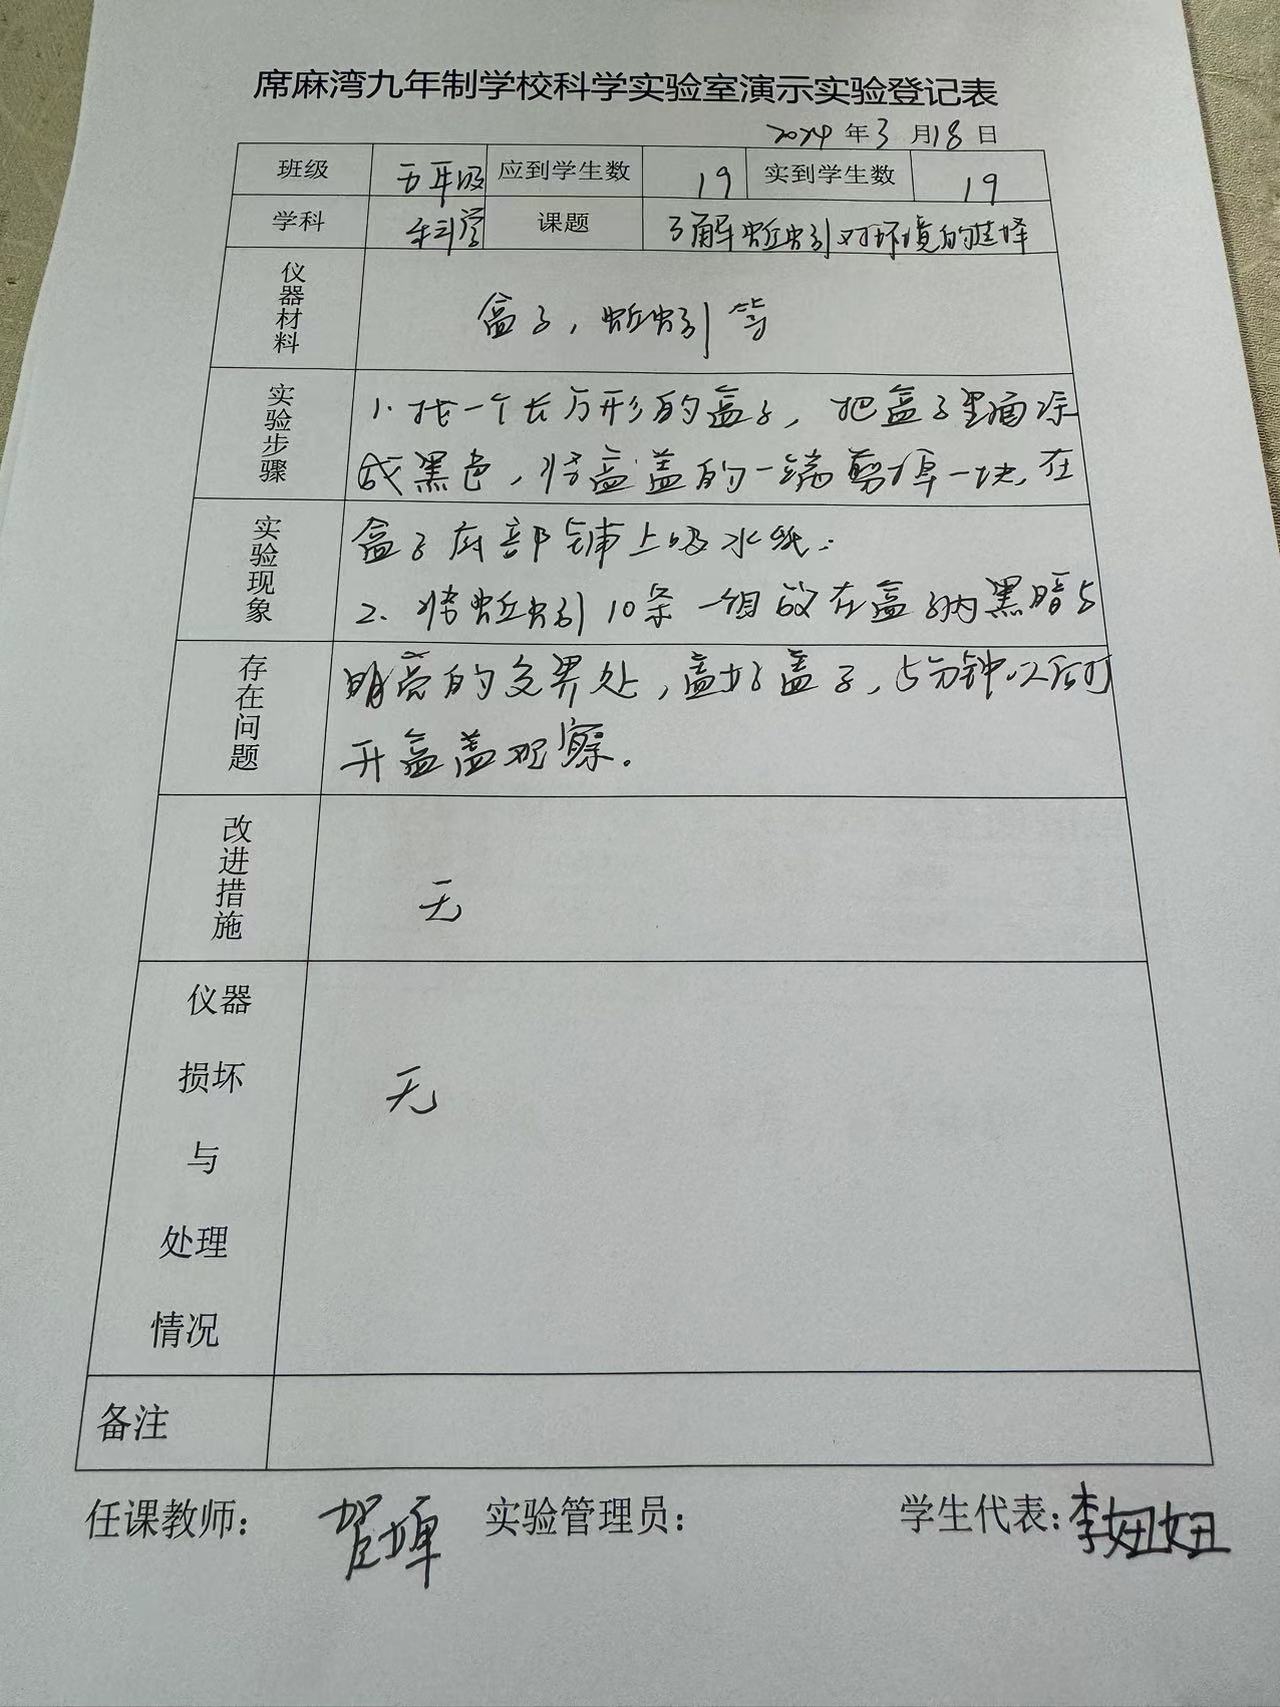 席麻湾九年制学校科学实验室演示实验登记表
2024年3月18日
班级 五年级 应到学生数 19 实到学生数 19
学科 科学 课题 了解蚯蚓对环境的选择
仪器材料 盒子，蚯蚓等
实验步骤
1. 找一个长方形的盒子，把盒子里面涂
成黑色，将盒盖的一端剪掉一块，在
实验现象
盒子底部铺上吸水纸；
2. 将蚯蚓10条一组放在盒子内黑暗与
存在问题
明亮的交界处，盖好盖子，5分钟以后打
开盒盖观察。
改进措施 无
仪器损坏与处理情况 无
备注
任课教师： 实验管理员： 学生代表：李妞妞